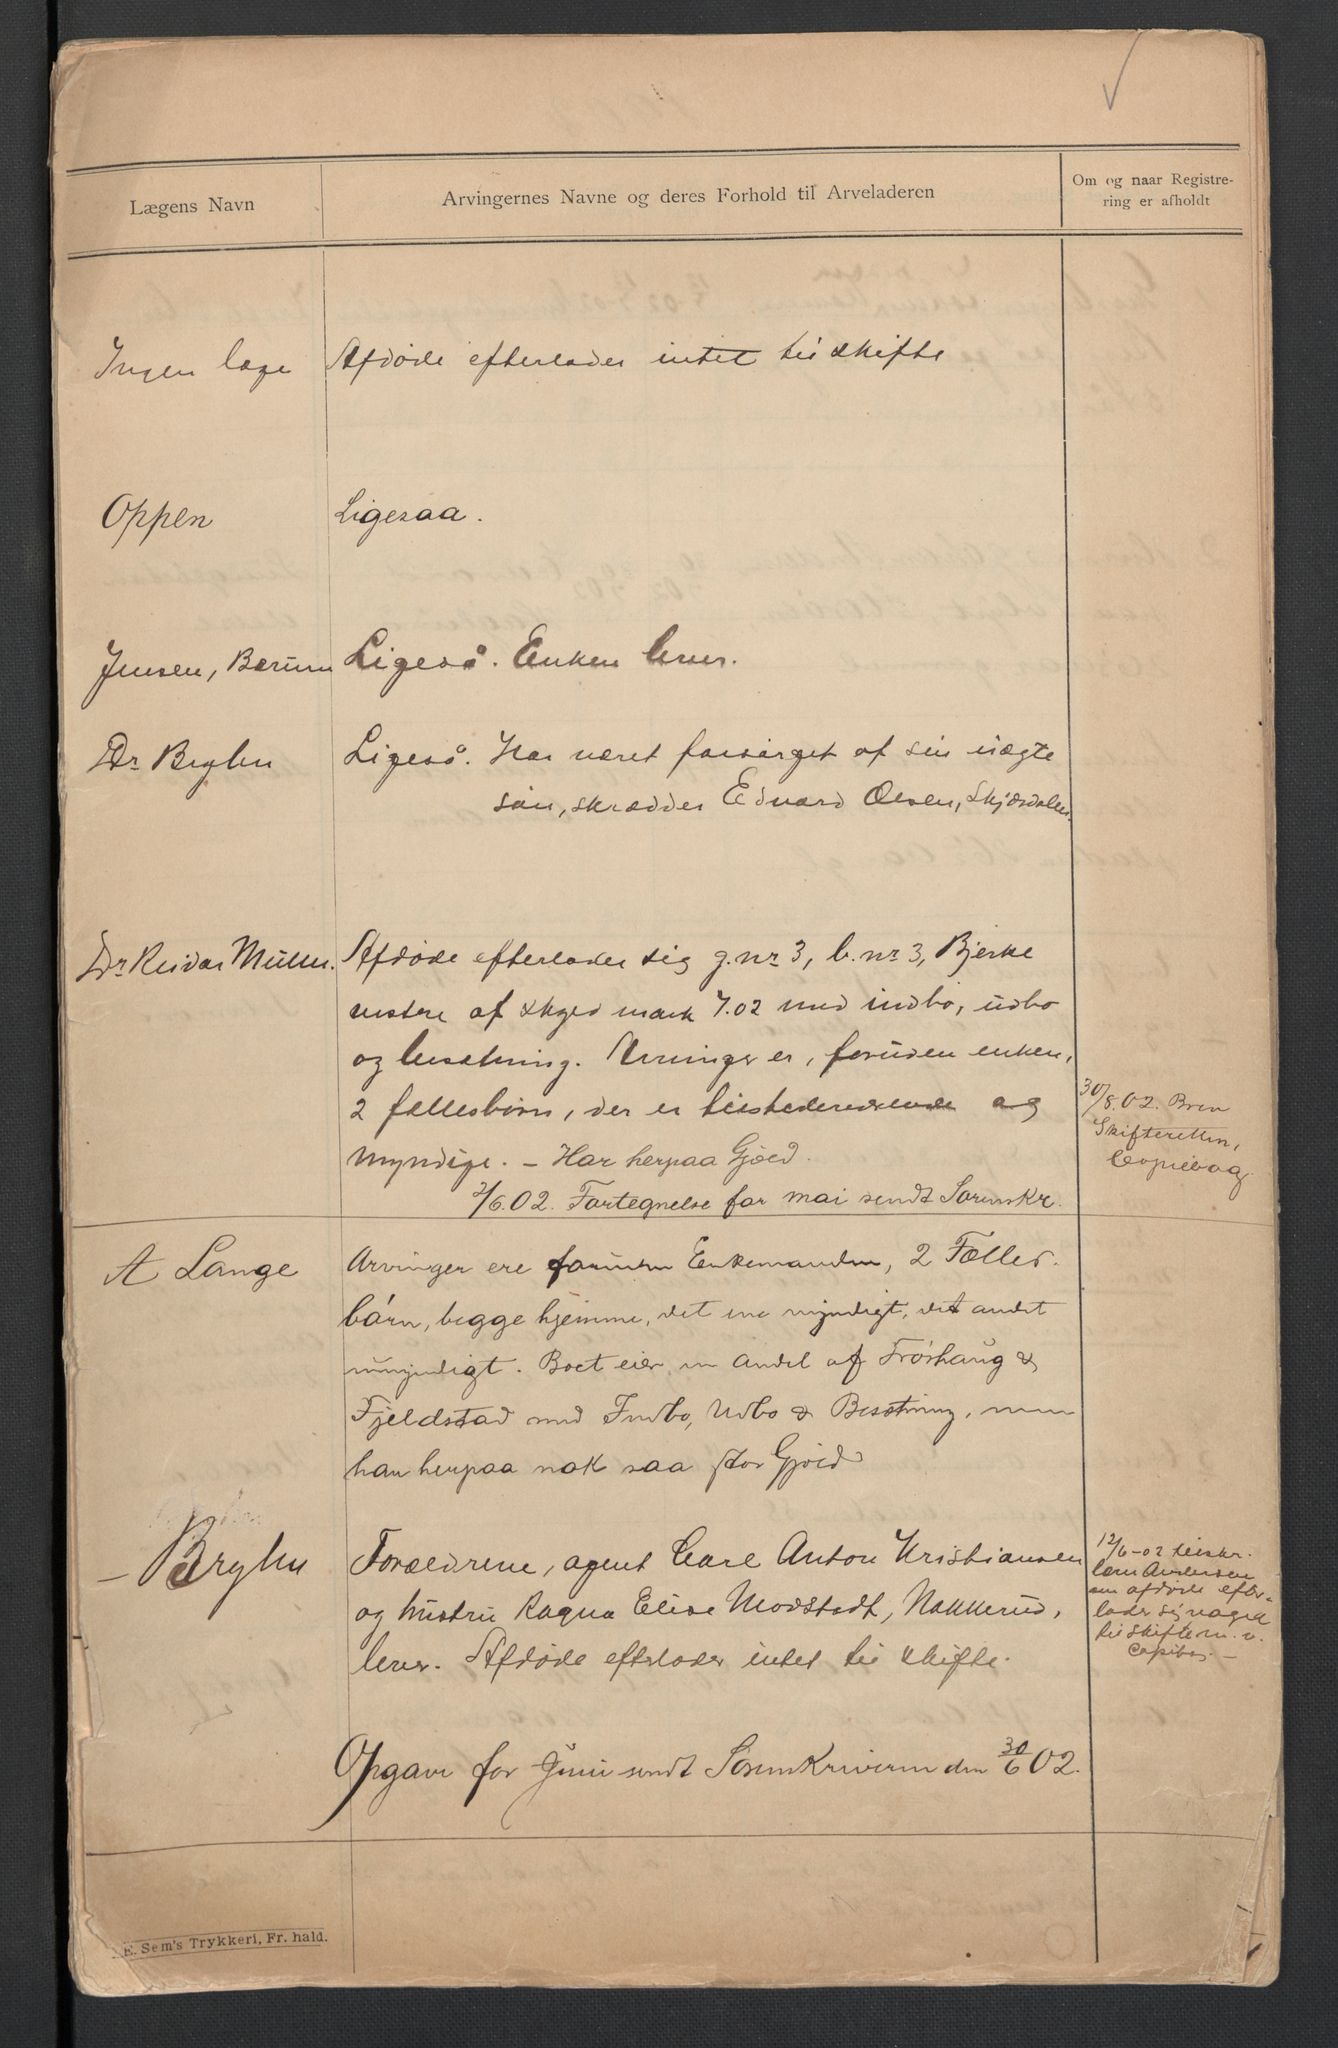 Lægens Navn
Arvingernes Navne og deres Forhold til Arveladeren
Om og naar Registre-
ring er afholdt
Ingen læge
Afdøde efterlader intet til skifte
Oppen
Ligesaa.
Jensen, Bærum
Ligeså. Enken lever.
Dr Bryhn
Ligeså. Har været forsørget af sin uægte
søn, skrædder Edvard Olsen, Skjærdalen.
Dr Reidar Müller.
Afdøde efterlader sig g.nr 3, b.nr 3, Bjerke
vestre af skyld mark 7.02 med indbo, udbo
og besætning. Arvinger er, foruden enken,
2 fællesbørn, der er tilstedeværende og
myndige. – Har herpaa Gjæld.
2/6.02. Fortegnelse for mai sendt Sorenskr.
30/8.02. Brev
Skifteretten,
Copiebog
A Lange
Arvinger ere foruden Enkemanden, 2 Fælles-
børn, begge hjemme, det ene myndigt, det andet
umyndigt. Boet eier en Andel af Frøshaug &
Fjeldstad med Indbo, Udbo & Besætning, men
har herpaa nok saa stor Gjæld
– Bryhn
Forældrene, agent Carl Anton Kristiansen
og hustru Ragna Elise Modstadt, Nakkerud,
lever. Afdøde efterlader intet til skifte.
12/6-02 tilskr.
lem Andersen
om afdøde efter-
lader sig noget
til skifte m. v.
Copibog. –
Opgave for Juni sendt Sorenskriveren den 30/6 02.
E. Sem's Trykkeri, Fr. hald.